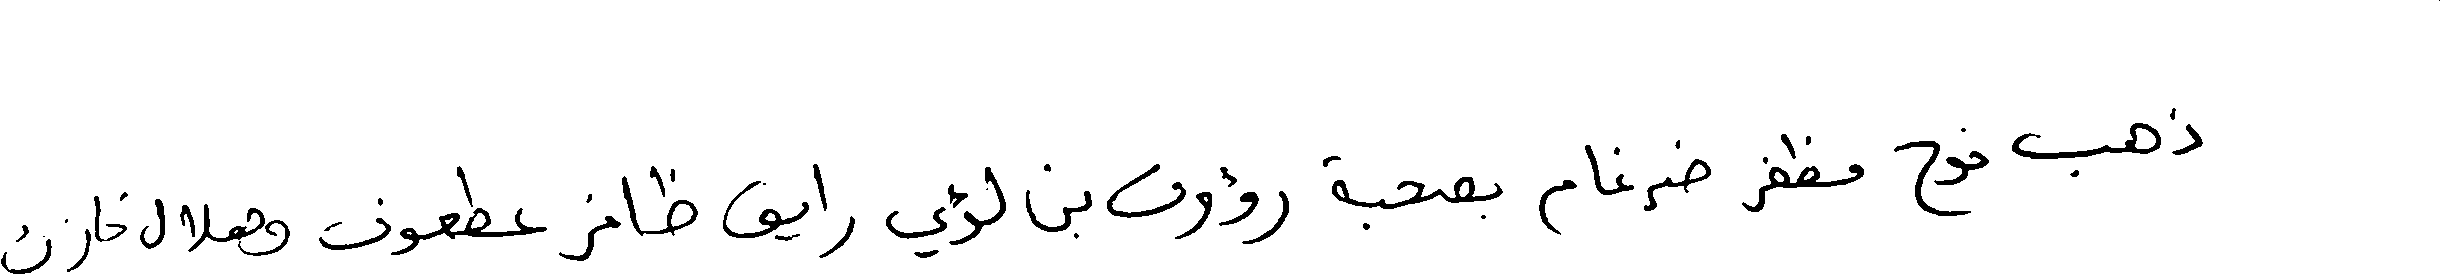 ذهب نوح مظفر ضرغام بصحبة رؤوف بن لؤي رايق ظافر عطعوف وهلال خازن